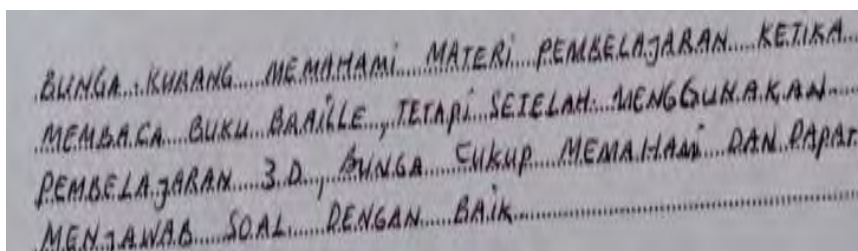 BUNGA KURANG MEMAHAMI MATERI PEMBELAJARAN KETIKA
MEMBACA BUKU BRAILLE, TETAPI SETELAH MENGGUNAKAN
PEMBELAJARAN 3D, BUNGA CUKUP MEMAHAMI DAN DAPAT
MENJAWAB SOAL DENGAN BAIK